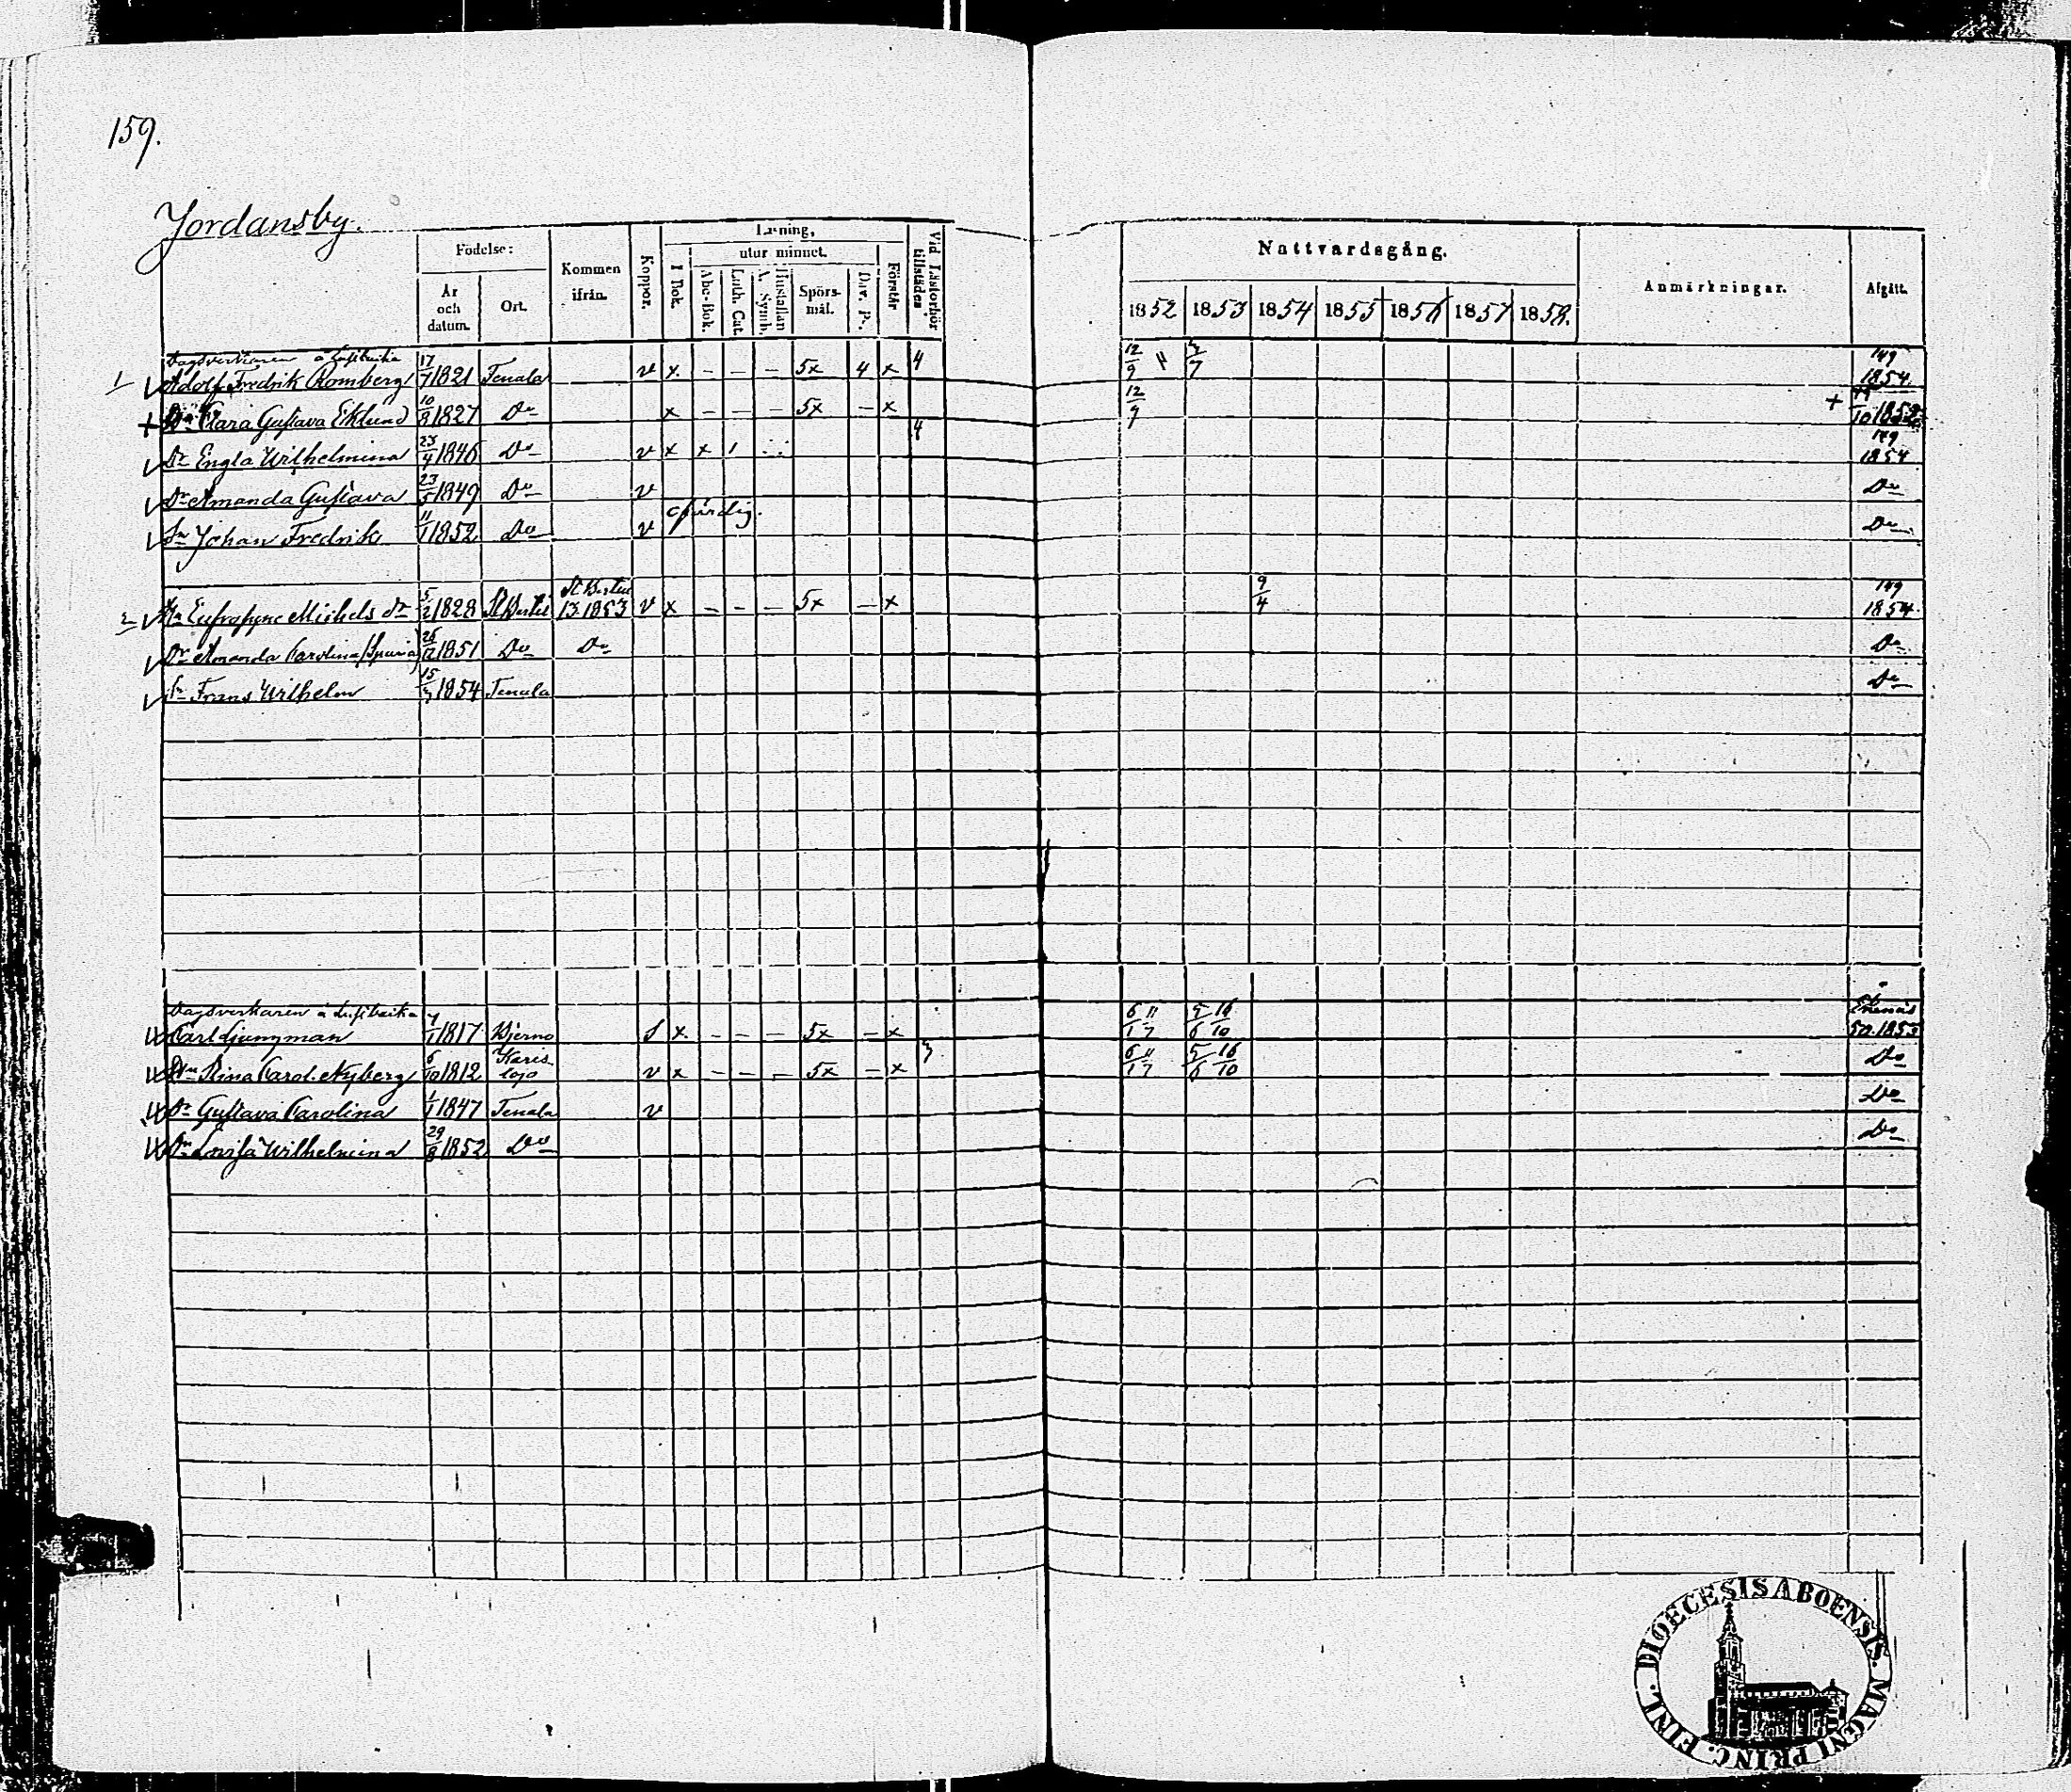 159.
Jordansby.
Födelse:
År och datum.
Ort.
Kommen ifrån.
Koppor.
Läsning,
I Bok.
utur minnet.
Abc-Bok.
Luth. Cat.
Hustaflan A. Symb.
Spörs-mål.
Dav. P.
Förstår
Vid Läsförhör tillstädes
Nattvardsgång.
1852 1853 1854 1855 1856 1857 1858.
Anmärkningar.
Afgått.
Dagsverkaren
1 Adolf Fredrik Romberg 17/7 1821 Tenala v x - - - 5x 4 x 4 12/9 149 1854.
+ Clara Gustava Eklund 10/8 1827 Do x - - - 5x - x 12/9 +
Dr Engla Wilhelmina 23/4 1846 Do v x x 4 149 1854
Dr Amanda Gustava 23/5 1849 Do v Do
Sn Johan Fredrik 11/1 1852 Do v Do
2 Michels dr 5/2 1828 13.1853 v x - - - 5x - x 9/4 149 1854.
Dr Amanda Carolina 1851 Do Do Do
Sn Frans Wilhelm 1854 Tenala Do
Dagsverkaren
Carl Ljungman 1817 Bjerno x - - - 5x - x 6/17 5/6 16/10 Ekenäs
Stina Carol. Nyberg 6/10 1812 Karis lojo v x - - - 5x - x 3 6/17 5/6 16/10 Do
Dr Gustava Carolina 1/1 1847 Tenala v Do
Dr Lovisa Wilhelmina 29/8 1852 Do Do
DIOECESIS ABOENSIS. MAGNI PRINC. FINL.